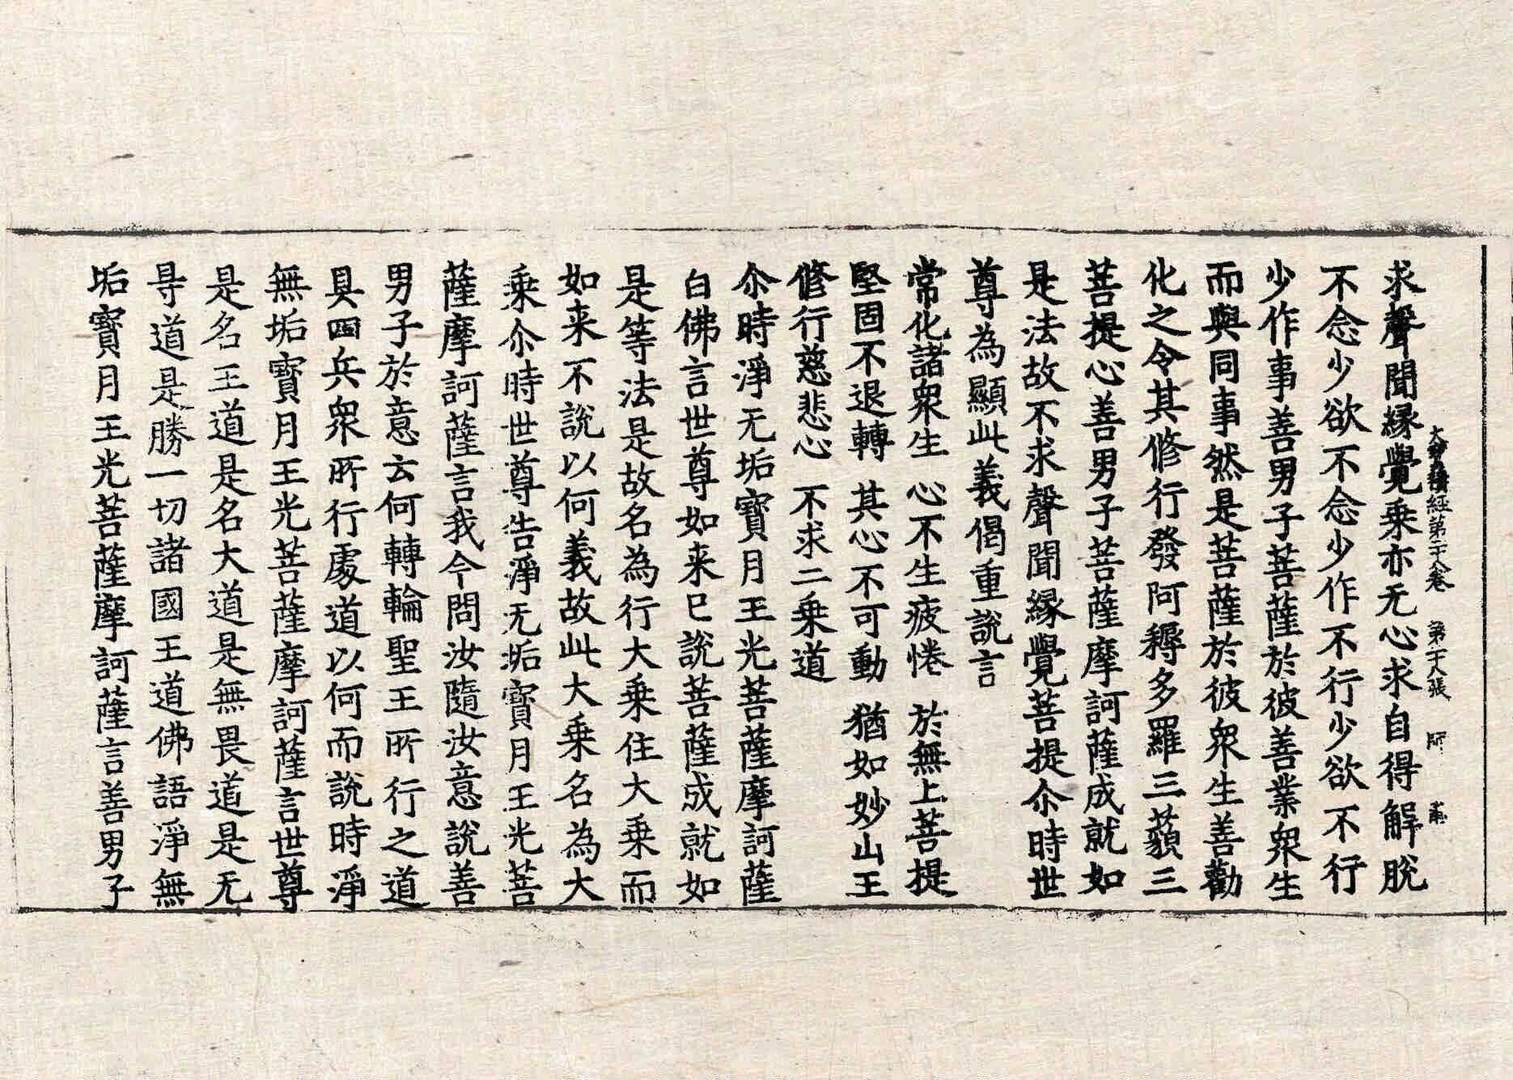 求聲聞緣覺乗亦无心求自得解脫
不念少欲不念少作不行少欲不行
少作事善男子菩薩於彼善業衆生
而與同事然是菩薩於彼衆生善勸
化之令其修行發阿耨多羅三藐三
菩提心善男子菩薩摩訶薩成就如
是法故不求聲聞緣覺菩提尒時世
尊為顯此義偈重說言
常化諸衆生 心不生疲惓 於無上菩提
堅固不退轉 其心不可動 猶如妙山王
修行慈悲心 不求二乗道
尒時淨无垢寶月王光菩薩摩訶薩
白佛言世尊如来已說菩薩成就如
是等法是故名為行大乗住大乗而
如来不說以何義故此大乗名為大
乗尒時世尊告淨无垢寶月王光菩
薩摩訶薩言我今問汝隨汝意說善
男子於意云何轉輪聖王所行之道
具四兵衆所行處道以何而說時淨
無垢寶月王光菩薩摩訶薩言世尊
是名王道是名大道是無畏道是无
㝵道是勝一切諸國王道佛語淨無
垢寶月王光菩薩摩訶薩言善男子
經第 卷 第 張 師